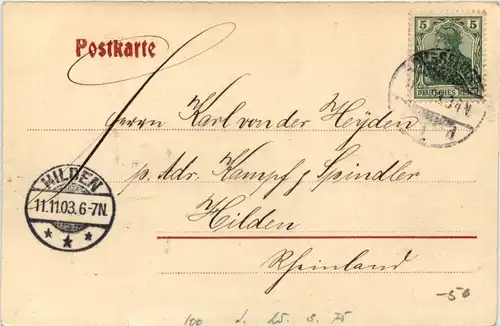 Postkarte
5 5
DEUTSCHES REICH
Herrn Karl von der Heyden
p. Adr. Kampf & Spindler
Hilden
HILDEN
11.11.03. 6-7N.
* * *
Rheinland
-50
100 d. 25. 3. 75